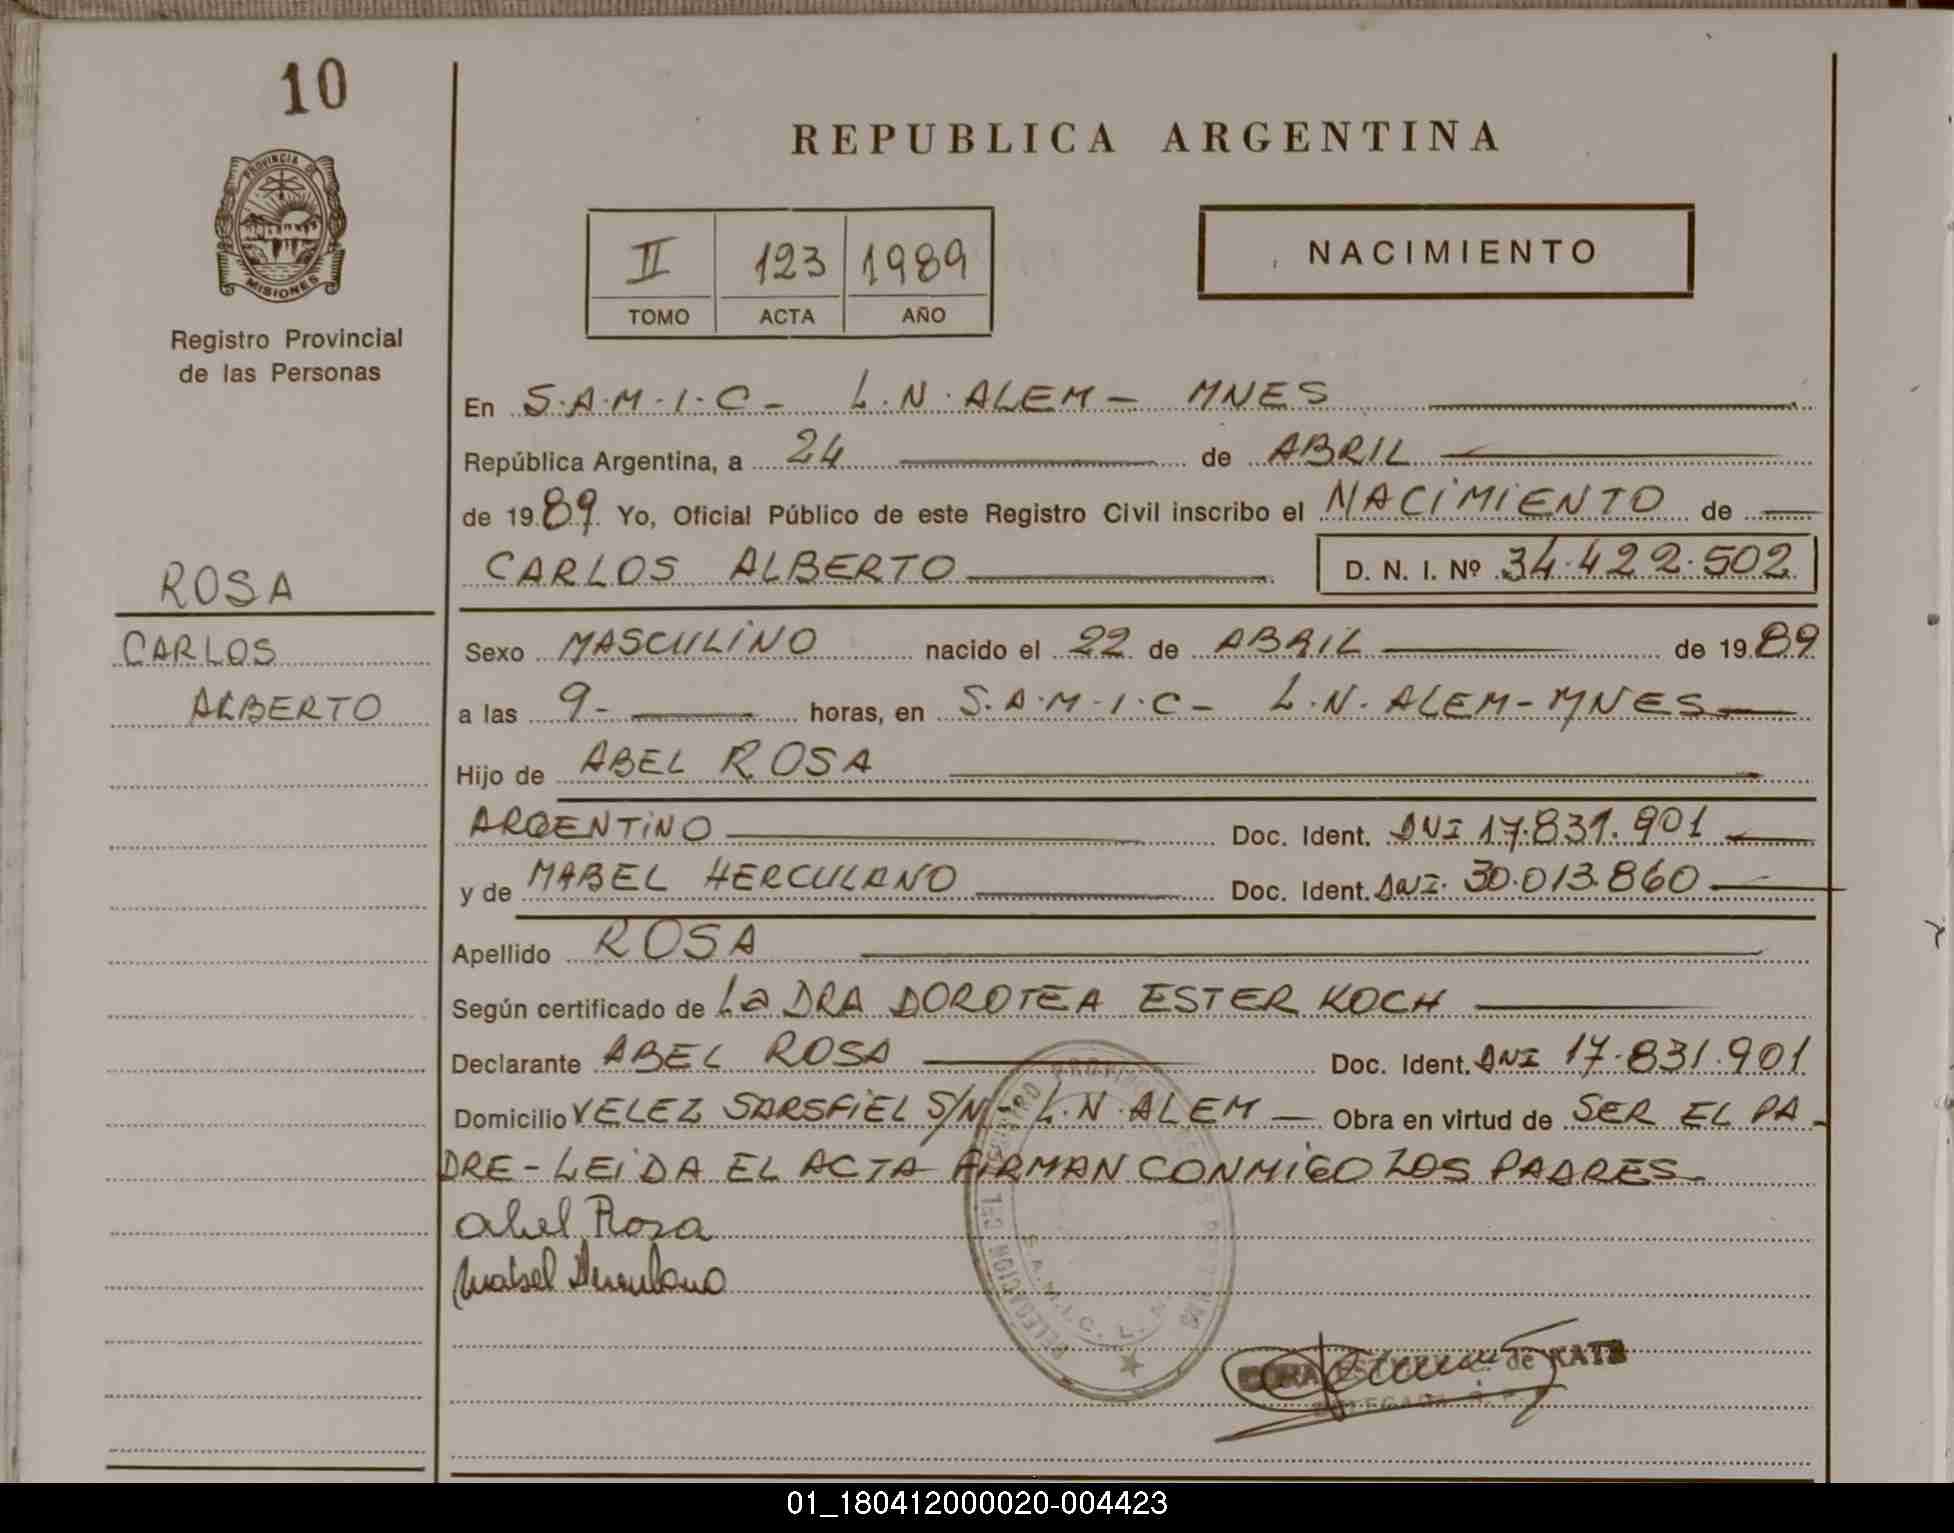 10
PROVINCIA DE
MISIONES
Registro Provincial
de las Personas
ROSA
CARLOS
ALBERTO
REPUBLICA ARGENTINA
II 123 1989
TOMO ACTA AÑO
NACIMIENTO
En S.A.M.I.C- L.N.ALEM- MNES
República Argentina, a 24 de ABRIL
de 1989. Yo, Oficial Público de este Registro Civil inscribo el NACIMIENTO de
CARLOS ALBERTO D. N. I. Nº 34.422.502
Sexo MASCULINO nacido el 22 de ABRIL de 1989
a las 9- horas, en S.A.M.I.C- L.N.ALEM-MNES
Hijo de ABEL ROSA
ARGENTINO Doc. Ident. DNI 17.831.901
y de MABEL HERCULANO Doc. Ident. DNI. 30.013.860
Apellido ROSA
Según certificado de La DRA DOROTEA ESTER KOCH
Declarante ABEL ROSA Doc. Ident. DNI 17.831.901
Domicilio VELEZ SARSFIEL S/N- L.N.ALEM - Obra en virtud de SER EL PA-
DRE-LEIDA EL ACTA FIRMAN CONMIGO LOS PADRES
Abel Rosa
Mabel Herculano
DELEGACION
S.A.M.I.C. L.N.
de KATZ
01_180412000020-004423